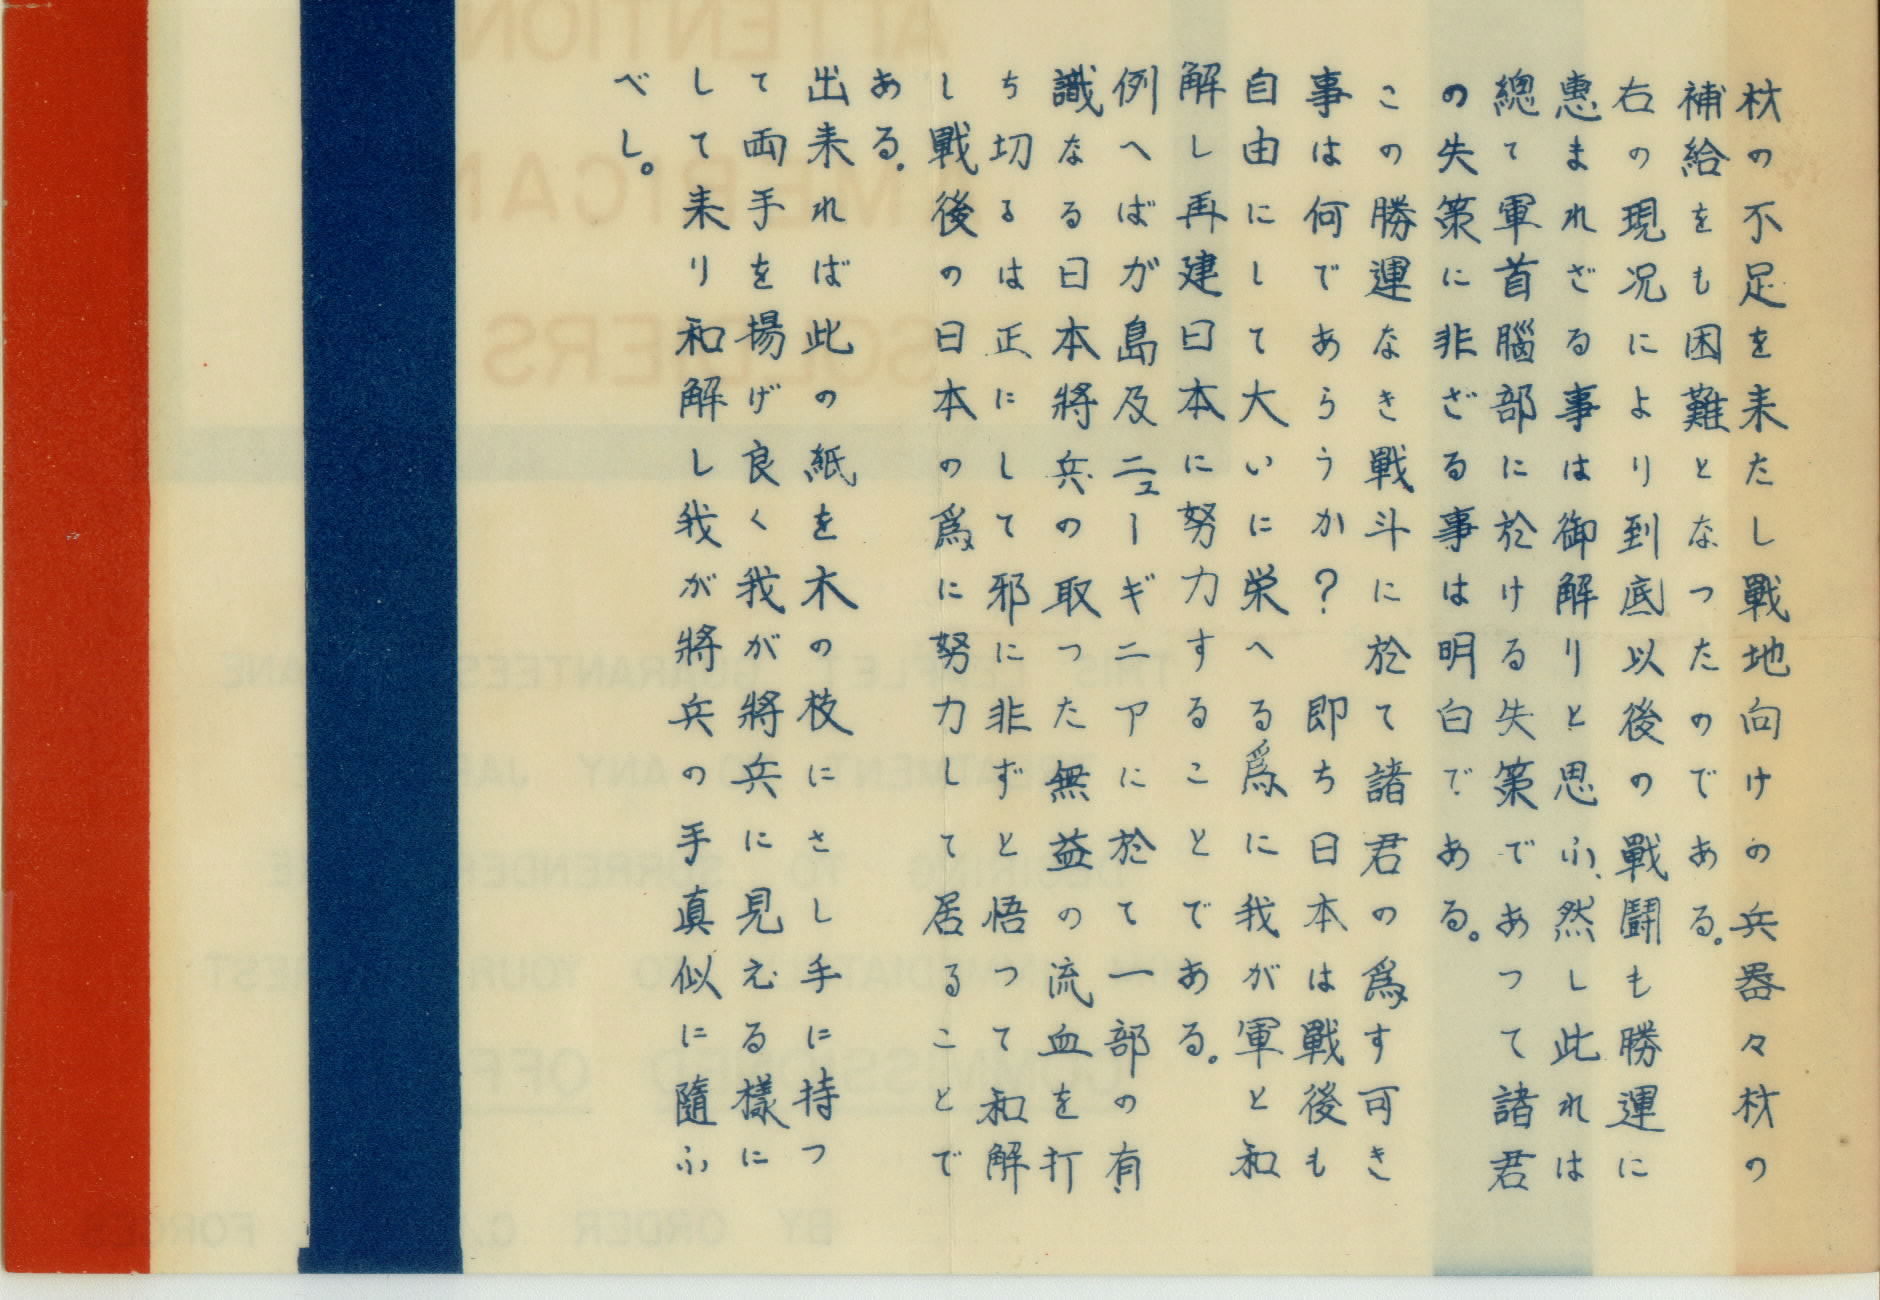 材の不足を来たし戰地向けの兵器々材の
補給をも困難となつたのである。
右の現況により到底以後の戰鬪も勝運に
恵まれざる事は御解りと思ふ、然し此れは
總て軍首腦部に於ける失策であつて諸君
の失策に非ざる事は明白である。
この勝運なき戰斗に於て諸君の爲す可き
事は何であらうか? 即ち日本は戰後も
自由にして大いに栄へる爲に我が軍と和
解し再建日本に努力することである。
例へばガ島及ニューギニアに於て一部の有
識なる日本將兵の取つた無益の流血を打
ち切るは正にして邪に非ずと悟つて和解
し戰後の日本の爲に努力して居ることで
ある。
出来れば此の紙を木の枝にさし手に持つ
て両手を場げ良く我が將兵に見える樣に
して来り和解し我が將兵の手真似に隨ふ
べし。